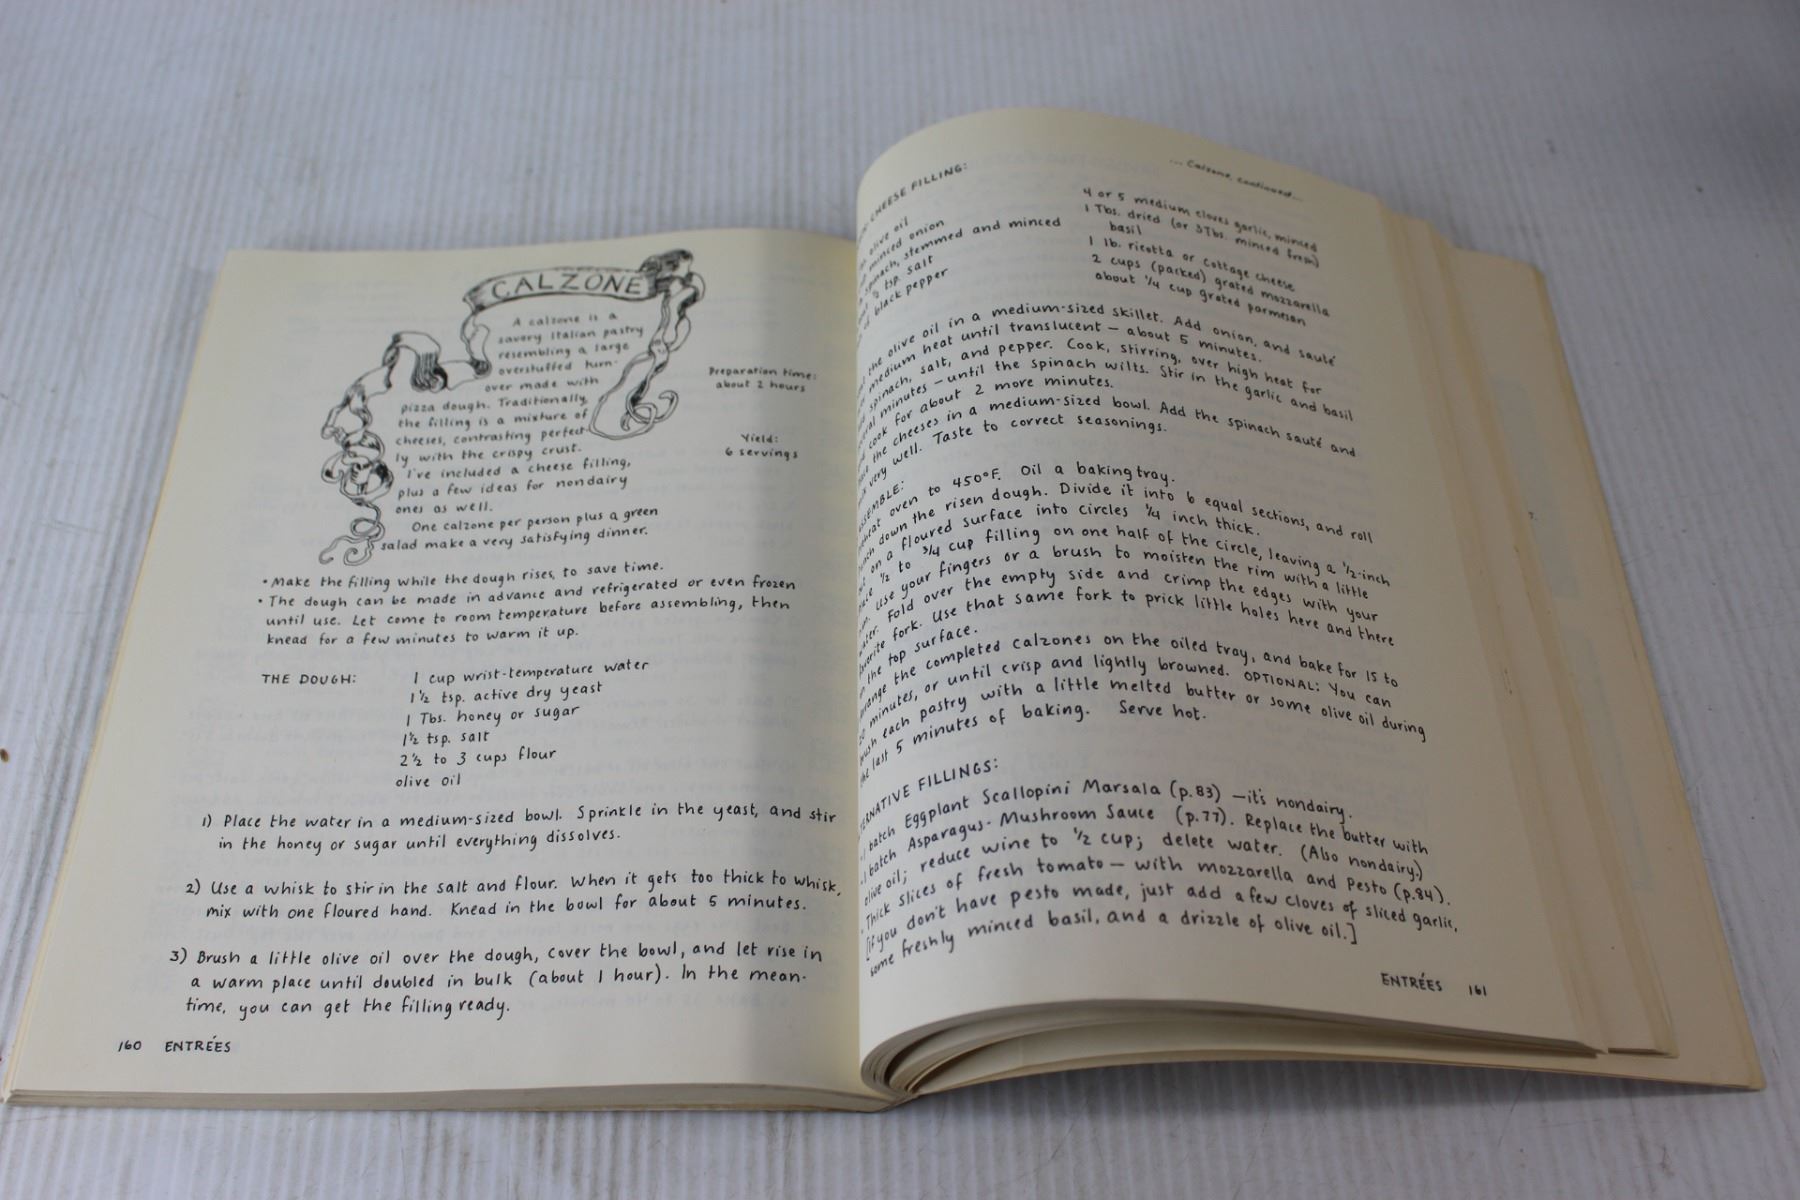 CALZONE
A calzone is a
savory Italian pastry
resembling a large
overstuffed turn-
over made with
pizza dough. Traditionally,
the filling is a mixture of
cheeses, contrasting perfect-
ly with the crispy crust.
I've included a cheese filling,
plus a few ideas for nondairy
ones as well.
One calzone per person plus a green
salad make a very satisfying dinner.
Preparation time:
about 2 hours
Yield:
6 servings
• Make the filling while the dough rises, to save time.
• The dough can be made in advance and refrigerated or even frozen
until use. Let come to room temperature before assembling, then
knead for a few minutes to warm it up.
THE DOUGH:
1 cup wrist-temperature water
1½ tsp. active dry yeast
1 Tbs. honey or sugar
1½ tsp. salt
2½ to 3 cups flour
olive oil
1) Place the water in a medium-sized bowl. Sprinkle in the yeast, and stir
in the honey or sugar until everything dissolves.
2) Use a whisk to stir in the salt and flour. When it gets too thick to whisk,
mix with one floured hand. Knead in the bowl for about 5 minutes.
3) Brush a little olive oil over the dough, cover the bowl, and let rise in
a warm place until doubled in bulk (about 1 hour). In the mean-
time, you can get the filling ready.
160 ENTRÉES
... Calzone, continued...
CHEESE FILLING:
olive oil
minced onion
spinach, stemmed and minced
½ tsp. salt
black pepper
4 or 5 medium cloves garlic, minced
1 Tbs. dried (or 3 Tbs. minced fresh)
basil
1 lb. ricotta or cottage cheese
2 cups (packed) grated mozzarella
about ¼ cup grated parmesan
the olive oil in a medium-sized skillet. Add onion, and sauté
medium heat until translucent — about 5 minutes.
spinach, salt, and pepper. Cook, stirring, over high heat for
minutes — until the spinach wilts. Stir in the garlic and basil
cook for about 2 more minutes.
the cheeses in a medium-sized bowl. Add the spinach sauté and
very well. Taste to correct seasonings.
ASSEMBLE:
oven to 450°F. Oil a baking tray.
down the risen dough. Divide it into 6 equal sections, and roll
on a floured surface into circles ¼ inch thick.
½ to ¾ cup filling on one half of the circle, leaving a ½-inch
Use your fingers or a brush to moisten the rim with a little
water. Fold over the empty side and crimp the edges with your
favorite fork. Use that same fork to prick little holes here and there
the top surface.
the completed calzones on the oiled tray, and bake for 15 to
20 minutes, or until crisp and lightly browned. OPTIONAL: You can
each pastry with a little melted butter or some olive oil during
the last 5 minutes of baking. Serve hot.
FILLINGS:
• 1 batch Eggplant Scallopini Marsala (p. 83) — it's nondairy.
• 1 batch Asparagus-Mushroom Sauce (p. 77). Replace the butter with
olive oil; reduce wine to ½ cup; delete water. (Also nondairy.)
• Thick slices of fresh tomato — with mozzarella and Pesto (p. 84).
[If you don't have pesto made, just add a few cloves of sliced garlic,
some freshly minced basil, and a drizzle of olive oil.]
ENTRÉES 161